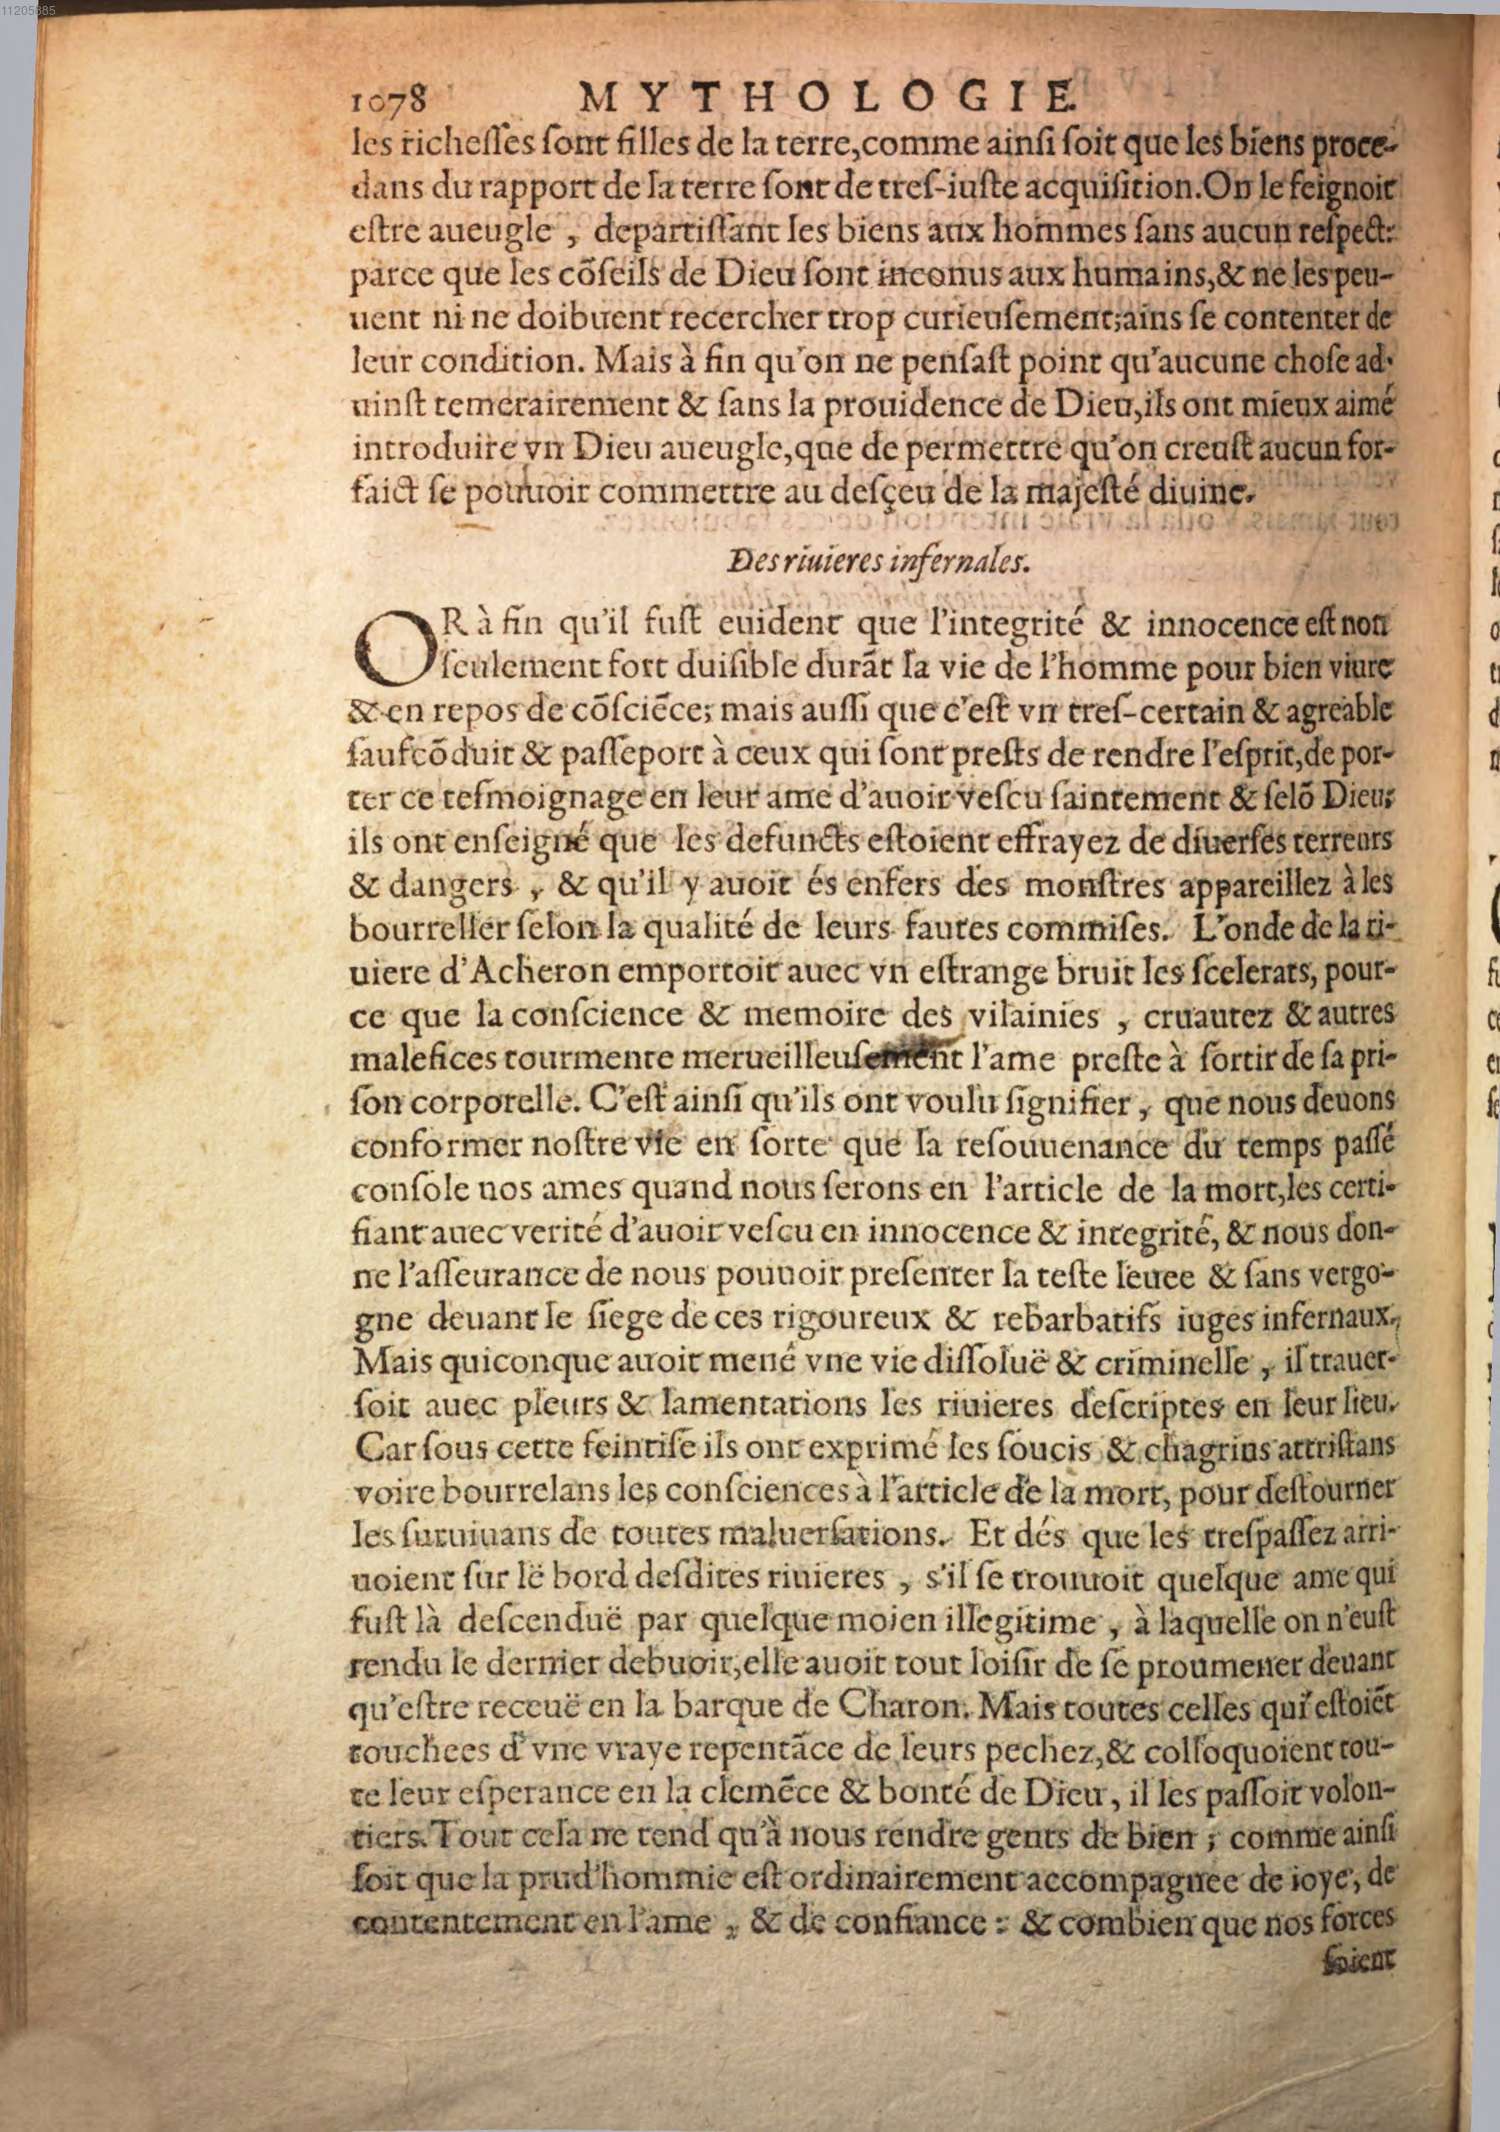 11205385
1078 MYTHOLOGIE
les richeſſes ſont filles de la terre,comme ainſi ſoit que les biens proce-
dans du rapport de la terre ſont de treſ-iuſte acquiſition.On le feignoit
eſtre aueugle , departiſſant les biens aux hommes ſans aucun reſpect:
parce que les cõſeils de Dieu ſont inconus aux humains,& ne les peu-
uent ni ne doibuent recercher trop curieuſement;ains ſe contenter de
leur condition. Mais à fin qu'on ne penſaſt point qu'aucune choſe ad-
uinſt temerairement & ſans la prouidence de Dieu,ils ont mieux aimé
introduire vn Dieu aueugle,que de permettre qu'on creuſt aucun for-
faict ſe pouuoir commettre au deſçeu de la majeſté diuine.
Des riuieres infernales.
OR à fin qu'il fuſt euident que l'integrité & innocence eſt non
ſeulement fort duiſible durãt la vie de l'homme pour bien viure
& en repos de cõſciẽce; mais auſſi que c'eſt vn treſ-certain & agreable
ſaufcõduit & paſſeport à ceux qui ſont preſts de rendre l'eſprit,de por-
ter ce teſmoignage en leur ame d'auoir veſcu ſaintement & ſelõ Dieu;
ils ont enſeigné que les defuncts eſtoient effrayez de diuerſes terreurs
& dangers , & qu'il y auoit és enfers des monſtres appareillez à les
bourreller ſelon la qualité de leurs fautes commiſes. L'onde de la ri-
uiere d'Acheron emportoit auec vn eſtrange bruit les ſcelerats, pour-
ce que la conſcience & memoire des vilainies , cruautez & autres
malefices tourmente merueilleuſement l'ame preſte à ſortir de ſa pri-
ſon corporelle. C'eſt ainſi qu'ils ont voulu ſignifier , que nous deuons
conformer noſtre vie en ſorte que la reſouuenance du temps paſſé
conſole nos ames quand nous ſerons en l'article de la mort,les certi-
fiant auec verité d'auoir veſcu en innocence & integrité, & nous don-
ne l'aſſeurance de nous pouuoir preſenter la teſte leuee & ſans vergo-
gne deuant le ſiege de ces rigoureux & rebarbatifs iuges infernaux.
Mais quiconque auoit mené vne vie diſſoluë & criminelle , il trauer-
ſoit auec pleurs & lamentations les riuieres deſcriptes en leur lieu.
Car ſous cette feintiſe ils ont exprimé les ſoucis & chagrins attriſtans
voire bourrelans les conſciences à l'article de la mort, pour deſtourner
les ſuruiuans de toutes maluerſations. Et dés que les treſpaſſez arri-
uoient ſur lë bord deſdites riuieres , s'il ſe trouuoit quelque ame qui
fuſt là deſcenduë par quelque moien illegitime , à laquelle on n'euſt
rendu le dernier debuoir,elle auoit tout loiſir de ſe proumener deuant
qu'eſtre receuë en la barque de Charon. Mais toutes celles qui eſtoiẽt
touchees d'vne vraye repentãce de leurs pechez,& colloquoient tou-
te leur eſperance en la clemẽce & bonté de Dieu, il les paſſoit volon-
tiers.Tout cela ne tend qu'à nous rendre gents de bien ; comme ainſi
ſoit que la prud'hommie eſt ordinairement accompagnee de ioye, de
contentement en l'ame , & de confiance : & combien que nos forces
ſoient